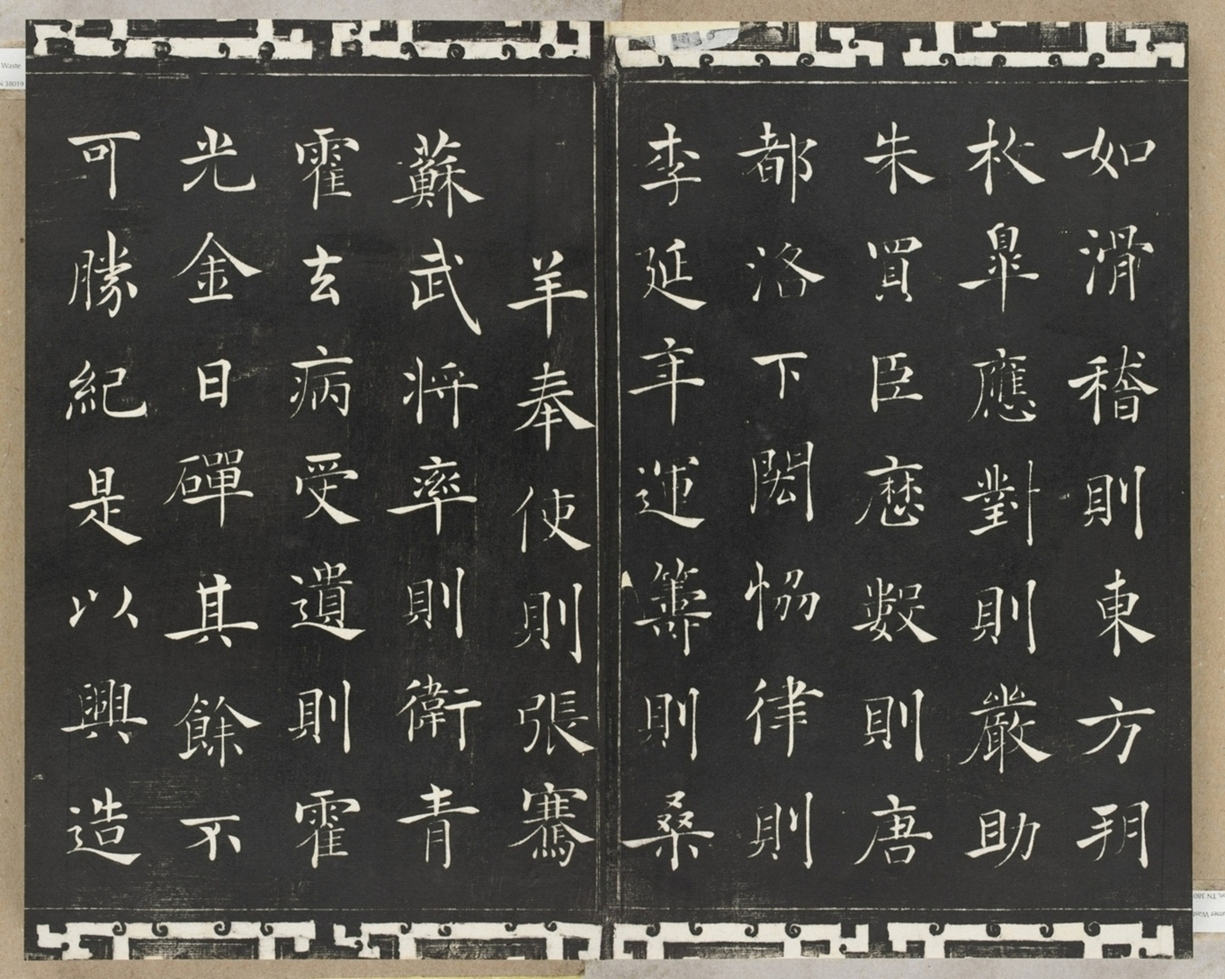 如滑稽則東方朔
枚皐應對則嚴助
朱買臣歷數則唐
都洛下閎恊律則
李延年運籌則桑
羊奉使則張騫
蘇武將率則衛青
霍去病受遺則霍
光金日磾其餘不
可勝紀是以興造
Waste
N 38019